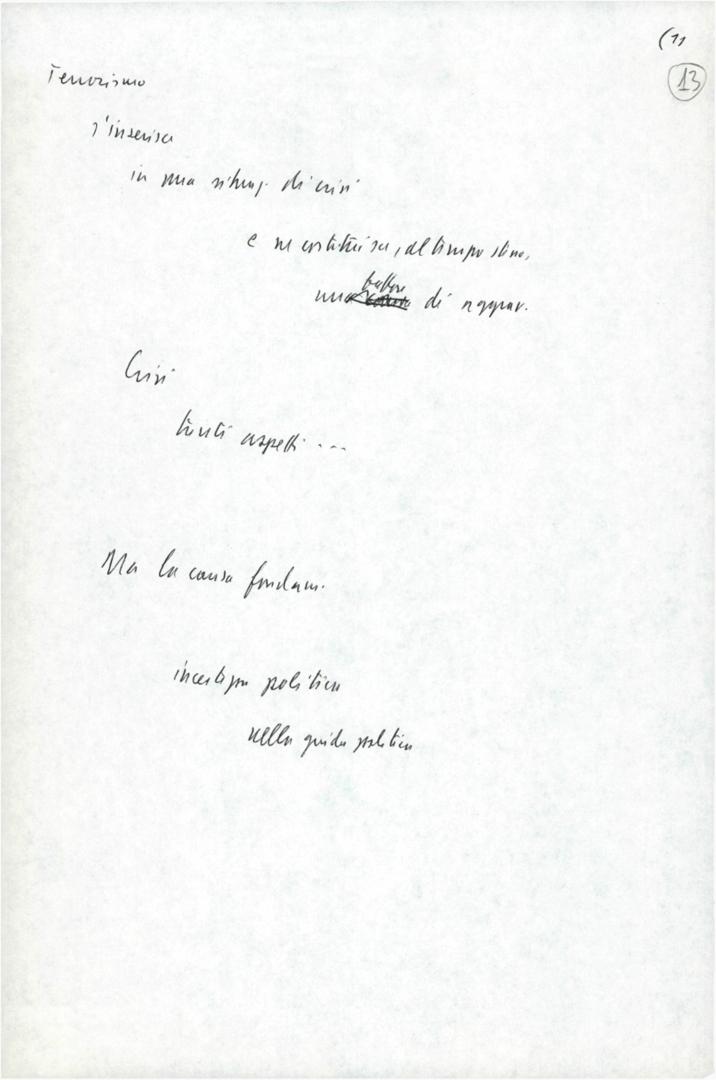 (11
13
Terrorismo
s'inserisce
in una situaz. di crisi
e ne costituisce, al tempo stesso,
un fattore di aggrav.
Crisi
tanti aspetti ...
Ma la causa fondam.
incertezza politica
nella guida politica